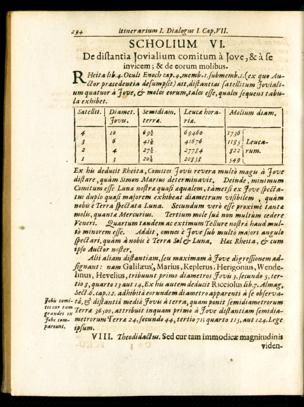 294 Itinerarium I. Dialogus I. Cap. VII.
SCHOLIUM VI.
De distantia Jovialium comitum à Jove, & à se
invicem; & de eorum molibus.
Rheita lib. 4. Oculi Enoch cap. 4. memb. 1. submemb. 1. (ex quo Au-
ctor praecedentia desumpsit) ait, distantias satellitum Joviali-
um quatuor à Jove, & moles eorum, tales esse, quales sequens tabu-
la exhibet.
Satellit. Diamet. Jovu. Semidiam. terræ. Leucæ hora-
riæ. Molium diam.
4 10
3 6
2 4
1 3
Leucæ-
rum.
Ex his deducit Rheita, Comites Jovis revera multò magis à Jove
distare, quàm Simon Marius determinavit. Deinde, minimum
Comitum esse Luna nostra quasi æqualem, tametsi ex Jove specta-
tus duplo quasi majorem exhibeat diametrum visibilem, quàm
nobis è Terra spectata Luna. Secundum verò esse proximè tantæ
molis, quanta Mercurius. Tertium mole sua non multùm cedere
Veneri. Quartum tandem ac extimum Tellure nostra haud mul-
tò minorem esse. Addit, omnes è Jove sub multò majori angulo
spectari, quàm à nobis è Terra Sol & Luna. Hæc Rheita, & cum
ipso Auctor noster.
Alii aliam distantiam, seu maximam à Jove digressionem ad-
signant: nam Galilæus, Marius, Keplerus, Herigonus, Wende-
linus, Hevelius, tribuunt primo diametros Jovis 3, secundo 5, ter-
tio 8, quarto 13 aut 14. Ex his autem deducit Ricciolus lib. 7. Almag.
Sect. 6. cap. 12. adhibitâ eorundem diametro apparenti à se observa-
tâ, & distantiâ mediâ Jovis à terra, quam ponit semidiametrorum
Terræ attribuit inquam primo à Jove distantiam semidia-
metrorum Terræ 24, secundo 44, tertio 71, quarto 115, aut 124. Lege
ipsum.
Jovis comi-
tes cur tam
grandes in
Jove com-
pareant.
VIII. Theodidactus. Sed cur tam immodicæ magnitudinis
viden-